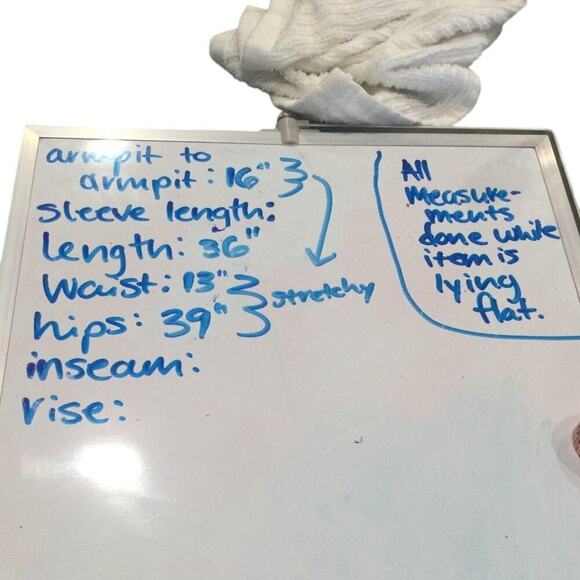 armpit to
armpit: 16"
sleeve length:
length: 36"
Waist: 13"
hips: 39"
stretchy
inseam:
rise:
All
measure-
ments
done while
item is
lying
flat.